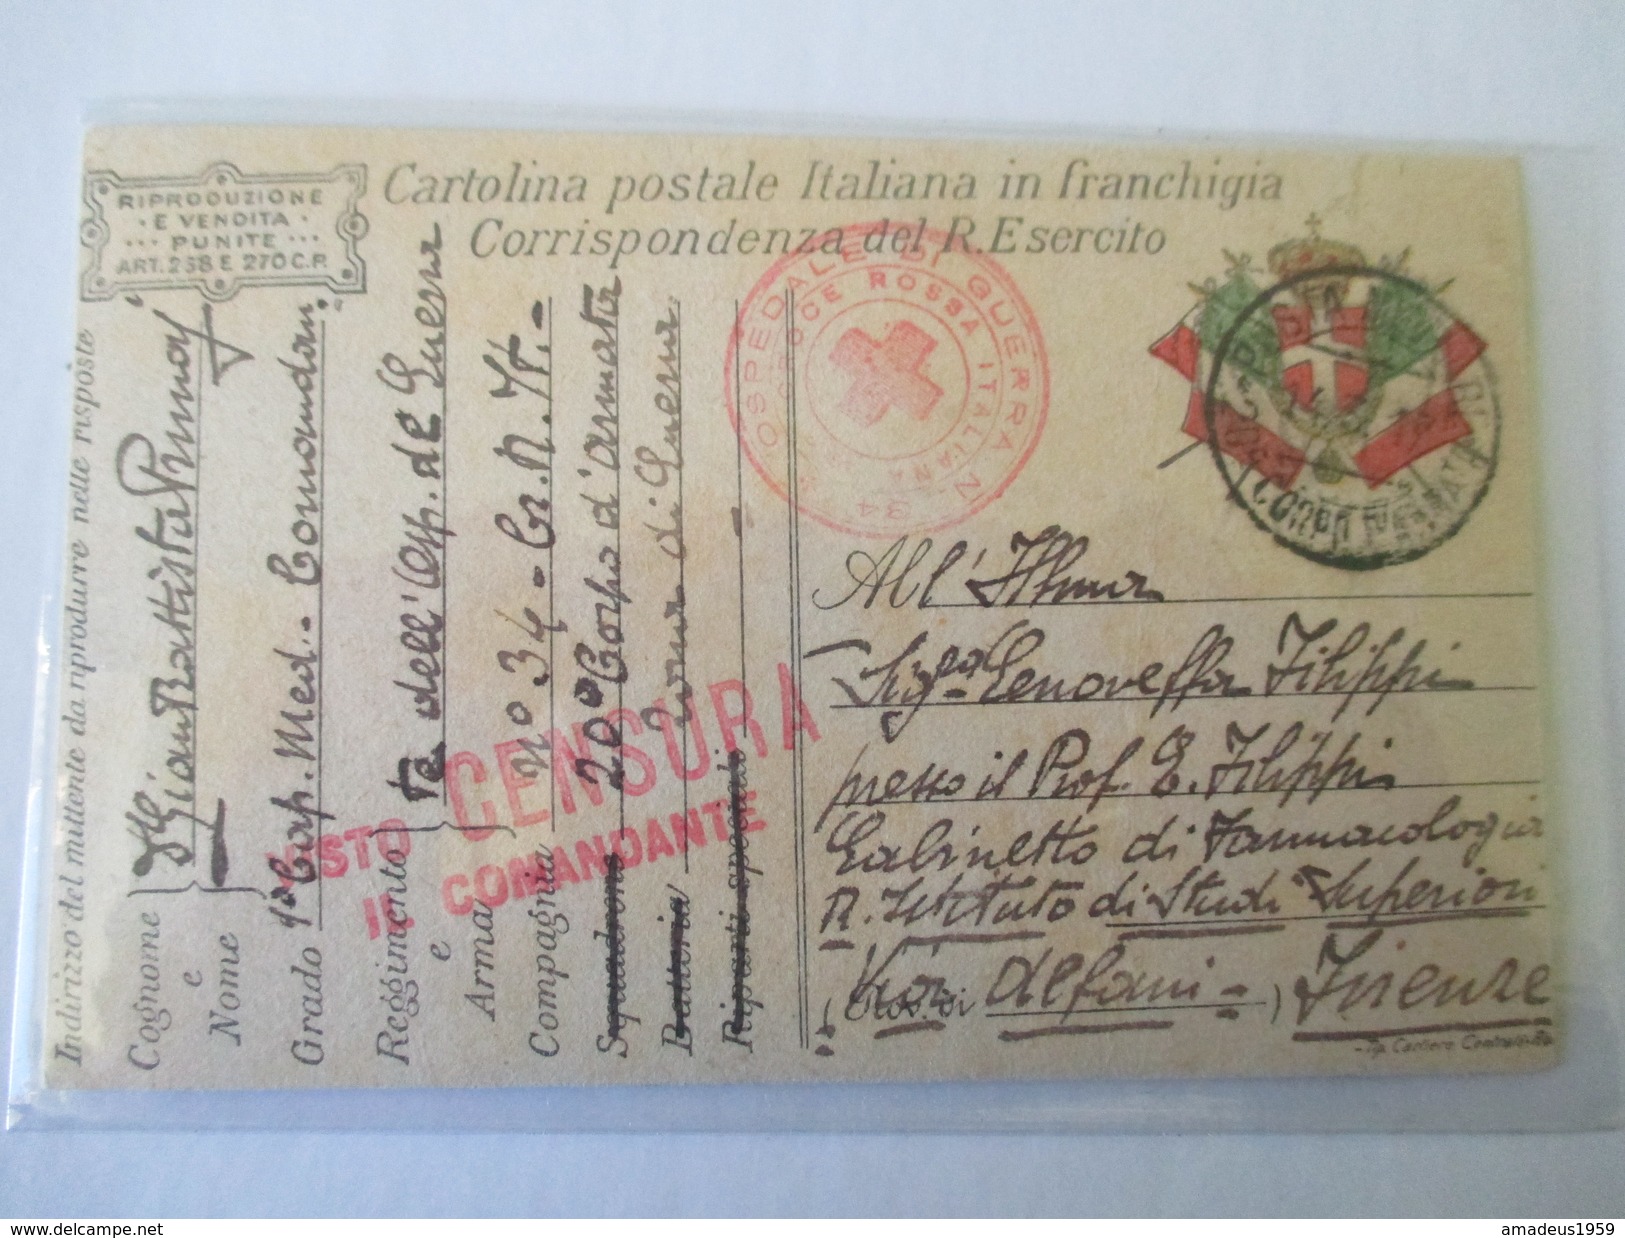 RIPRODUZIONE
· E VENDITA ·
··· PUNITE ···
ART. 258 E 270 C.P.
Cartolina postale Italiana in franchigia
Corrispondenza del R. Esercito
Indirizzo del mittente da riprodurre nelle risposte
Cognome e Nome
GianBattista
Grado 1° Cap. Med. - Comandan.
Reggimento e Arma te dell'Osp. di Guerra
Compagnia n° 34 - Cr. R. It. -
Squadrone 20° Corpo d'armata
Batteria Zona di Guerra
Riparti speciali -
OSPEDALE DI GUERRA N. 34
CROCE ROSSA ITALIANA
CENSURA
VISTO
IL COMANDANTE
POSTA
CORPO D'ARMATA
All'Illma
Sig.ra Genoveffa Filippi
presso il Prof. E. Filippi
Gabinetto di Farmacologia
R. Istituto di Studi Superiori
(Via Alfani - ) Firenze
delcampe.net
amadeus1959